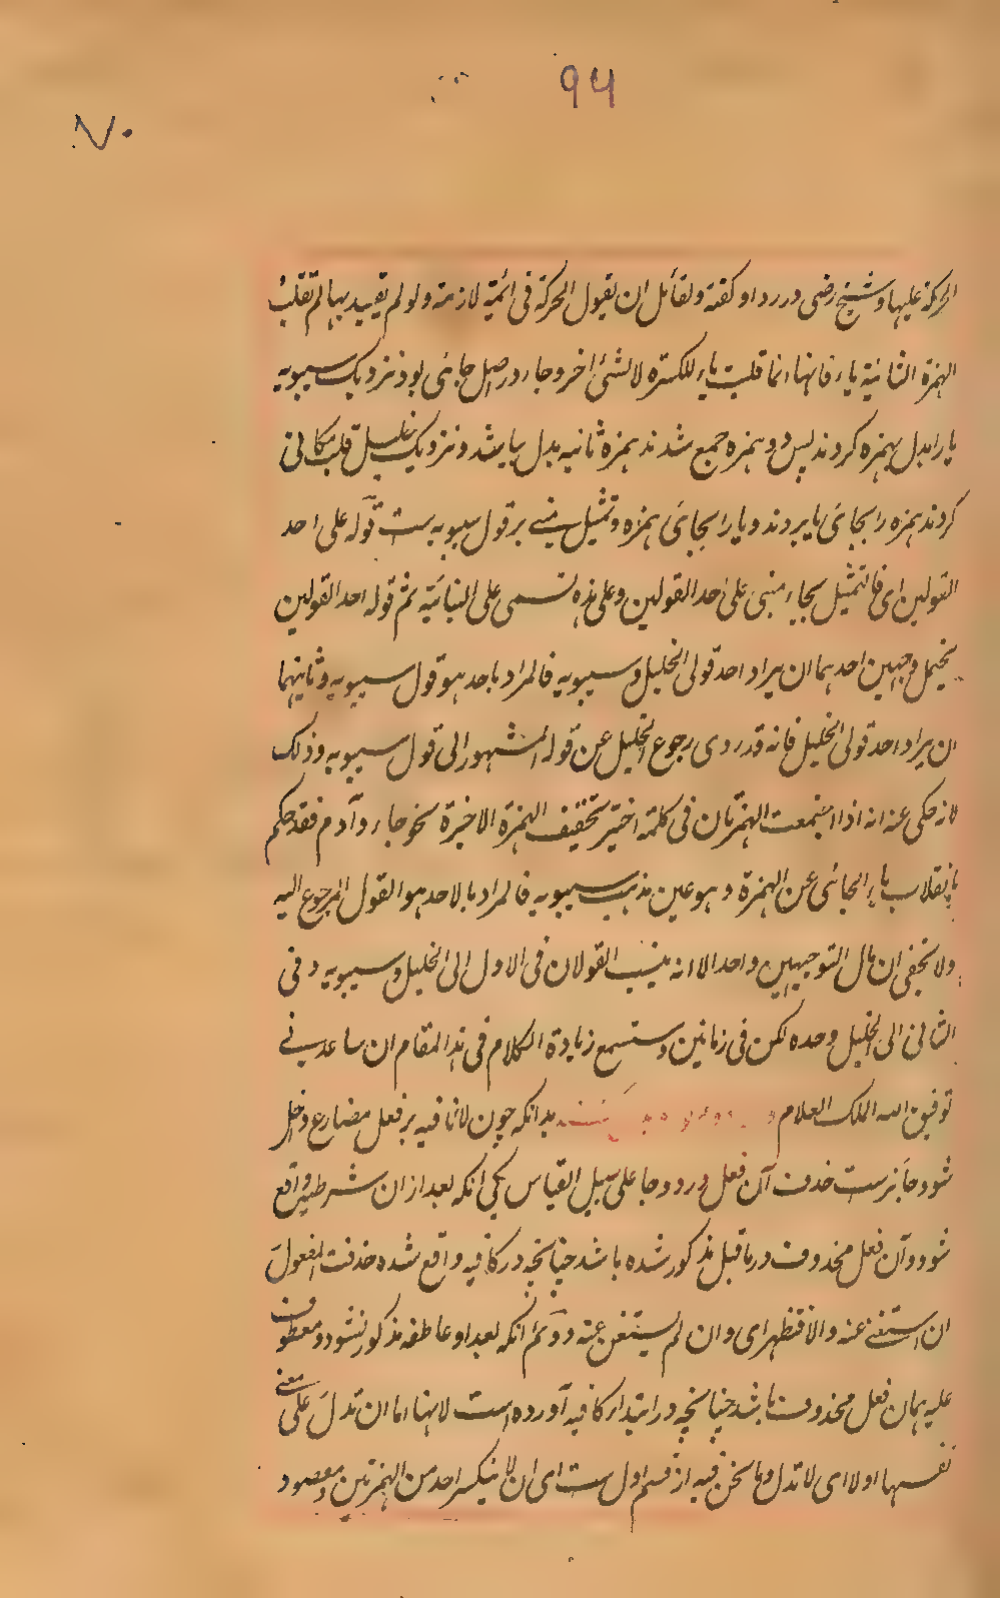 ۹۴
۷۰
الحرکة علیها و شیخ رضی در رد او گفته و لقائل ان یقول الحرکة فی ائمة لازمة و لو لم یقید بها لم تقلب
الهمزة الثانیة یاء فانها انما قلبت یاء للکسرة لا لشئ اخر و جاء در اصل جایئ بود نزدیک سیبویه
یا را بدل بهمزه کردند پس دو همزه جمع شدند همزه ثانیه بدل بیا شد و نزدیک خلیل قلب مکانی
کردند همزه را بجای یا بردند و یا را بجای همزه و تمثیل مبنی بر قول سیبویه ست قوله علی احد
القولین ای فالتمثیل بجاء مبنی علی احد القولین و علی هذه تسمی علی البنائیة ثم قوله احد القولین
یحتمل وجهین احدهما ان یراد احد قولی الخلیل و سیبویه فالمراد باحد هو قول سیبویه و ثانیهما
ان یراد احد قولی الخلیل فانه قد روی رجوع الخلیل عن قوله المشهور الی قول سیبویه و ذلک
لانه حکی عنه انه اذا اجتمعت الهمزتان فی کلمة اختیر تخفیف الهمزة الاخیرة نحو جاء و آدم فقد حکم
بانقلاب یاء الجائی عن الهمزة و هو عین مذهب سیبویه فالمراد بالاحد هو القول المرجوع الیه
و لا یخفی ان مآل التوجیهین واحد الا انه ینسب القولان فی الاول الی الخلیل و سیبویه و فی
الثانی الی الخلیل وحده لکن فی زمانین و ستسمع زیادة الکلام فی هذا المقام ان ساعدنی
توفیق الله الملک العلام بدانکه چون لا نافیه بر فعل مضارع داخل
شود جائزست حذف آن فعل در دو جا علی سبیل القیاس یکی انکه بعد از ان شرطیه واقع
شود و آن فعل محذوف در ماقبل مذکور شده باشد چنانچه در کافیه واقع شده حذفت المفعول
ان استغنی عنه و الا فتظهر ای و ان لم یستغن عنه دوئم انکه بعد او عاطفه مذکور نشود و معطوف
علیه همان فعل محذوف باشد چنانچه در ابتداء کافیه آورده است لانها اما ان تدل علی معنی
نفسها او لا ای لا تدل و ما نحن فیه از قسم اول ست ای ان لا ینکسر احد من الهمزتین و مقصود